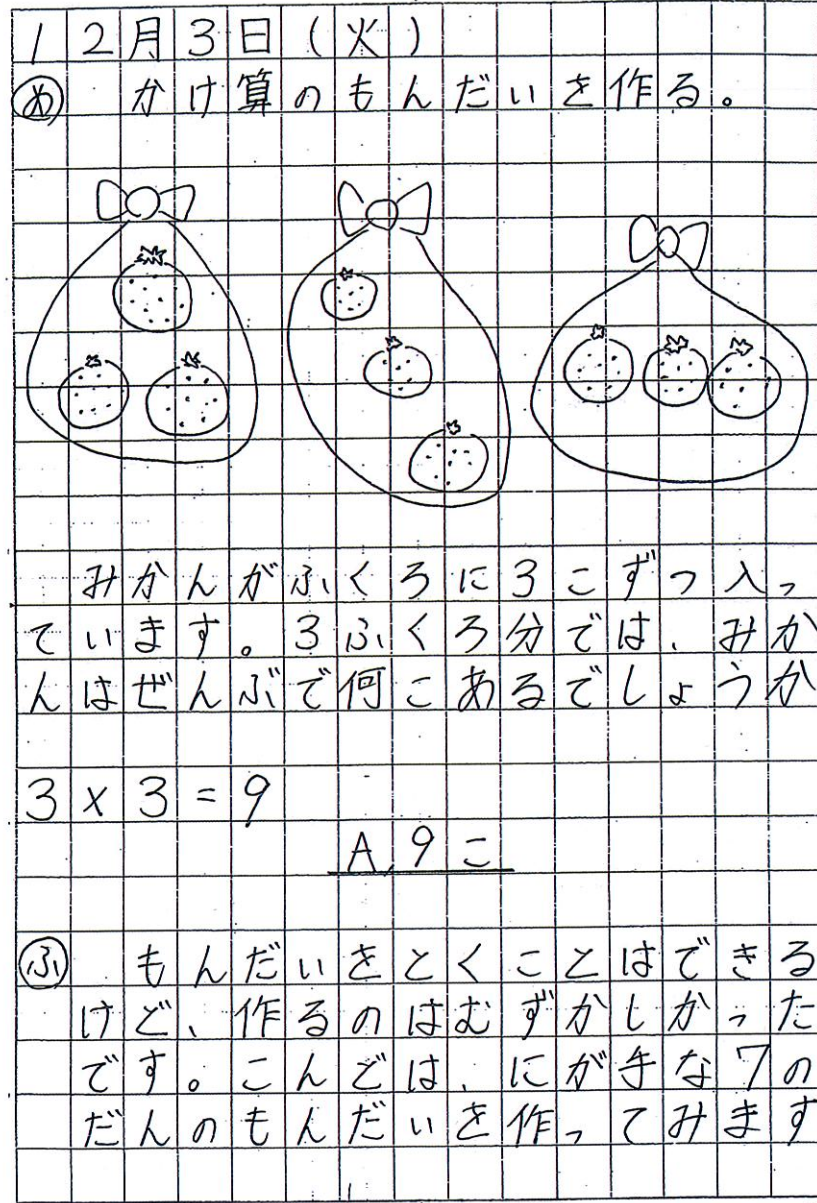 12月3日(火)
め かけ算のもんだいを作る。
みかんがふくろに3こずつ入っ
ています。3ふくろ分では、みか
んはぜんぶで何こあるでしょうか
3×3=9
A,9こ
ふ もんだいをとくことはできる
けど、作るのはむずかしかった
です。こんどは、にが手な7の
だんのもんだいを作ってみます